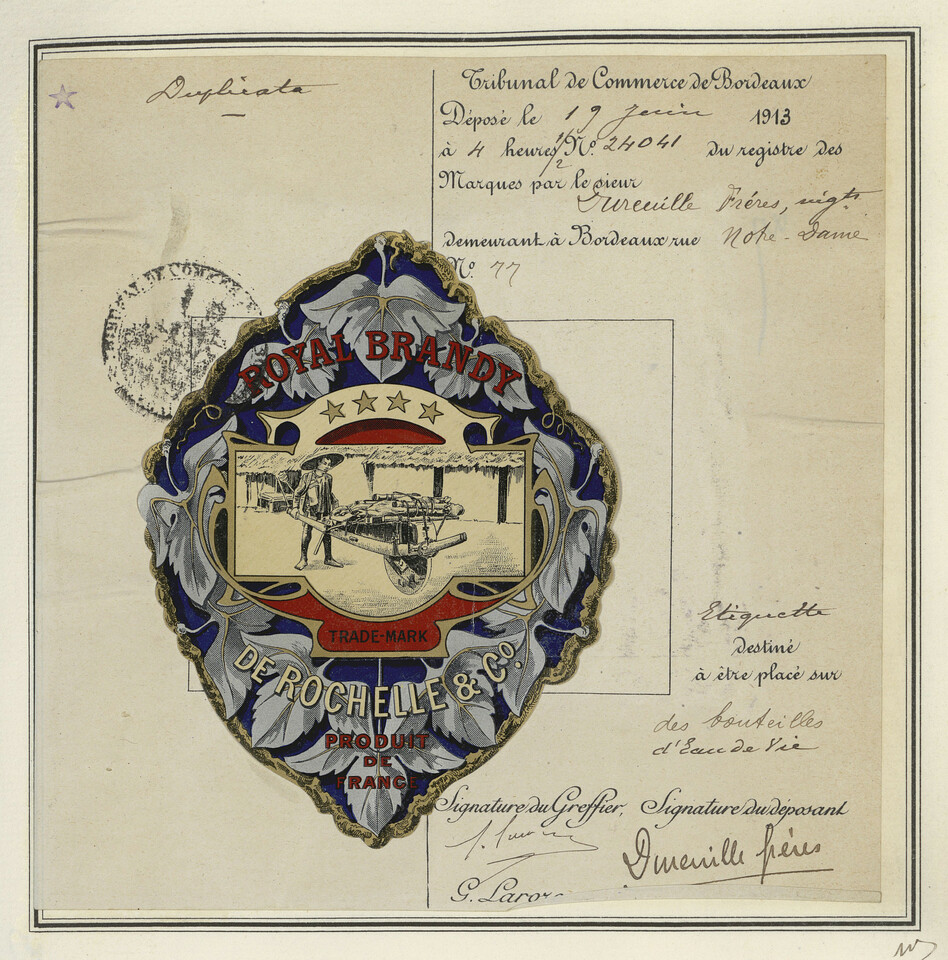 Duplicata
Tribunal de Commerce de Bordeaux
Déposé le 19 Juin 1913
à 4 heures 1/2 Nº. 24041 du registre des
Marques par le sieur
Fréres, nigts
demeurant à Bordeaux rue Notre-Dame
Nº. 77
ROYAL BRANDY
TRADE-MARK
DE ROCHELLE & Cº.
PRODUIT
DE
FRANCE
Etiquette
destiné
à être placé sur
des bouteilles
d'Eau de Vie
Signature du Greffier, Signature du déposant
frères